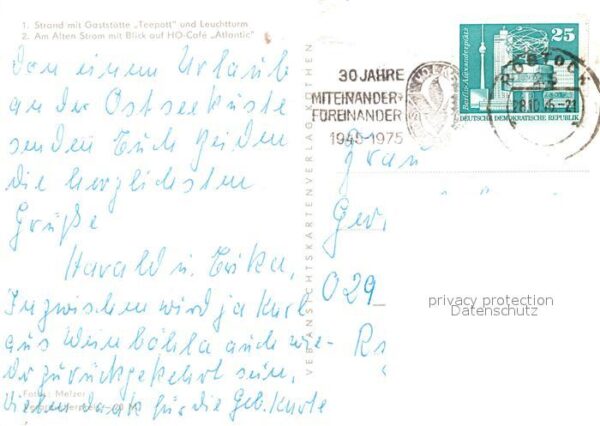 1. Strand mit Gaststätte „Teepott" und Leuchtturm
2. Am Alten Strom mit Blick auf HO-Café „Atlantic"
Von einem Urlaub
an der Ostseeküste
senden Euch beiden
die herzlichsten
Grüße
Harald u. Erika,
Inzwischen wird ja Kurt
aus Weinböhla auch wie-
der zurückgekehrt sein,
Vielen Dank für die Geb. Karte
Fotos: Melzer
VERANSICHTSKARTENVERLAG KÖTHEN
30 JAHRE
MITEINANDER
FÜREINANDER
1945-1975
25
Berlin, Alexanderplatz
DEUTSCHE DEMOKRATISCHE REPUBLIK
ROSTOCK
28.10.
-21
Frau
Ger
029
Rs
privacy protection
Datenschutz